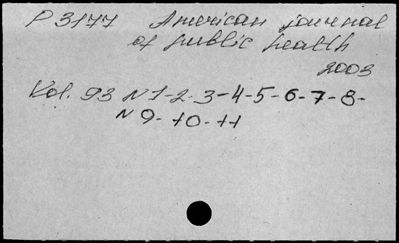 P 3177 American journal
of public health
2003
Vol. 93 N 1-2-3-4-5-6-7-8-
N 9-10-11